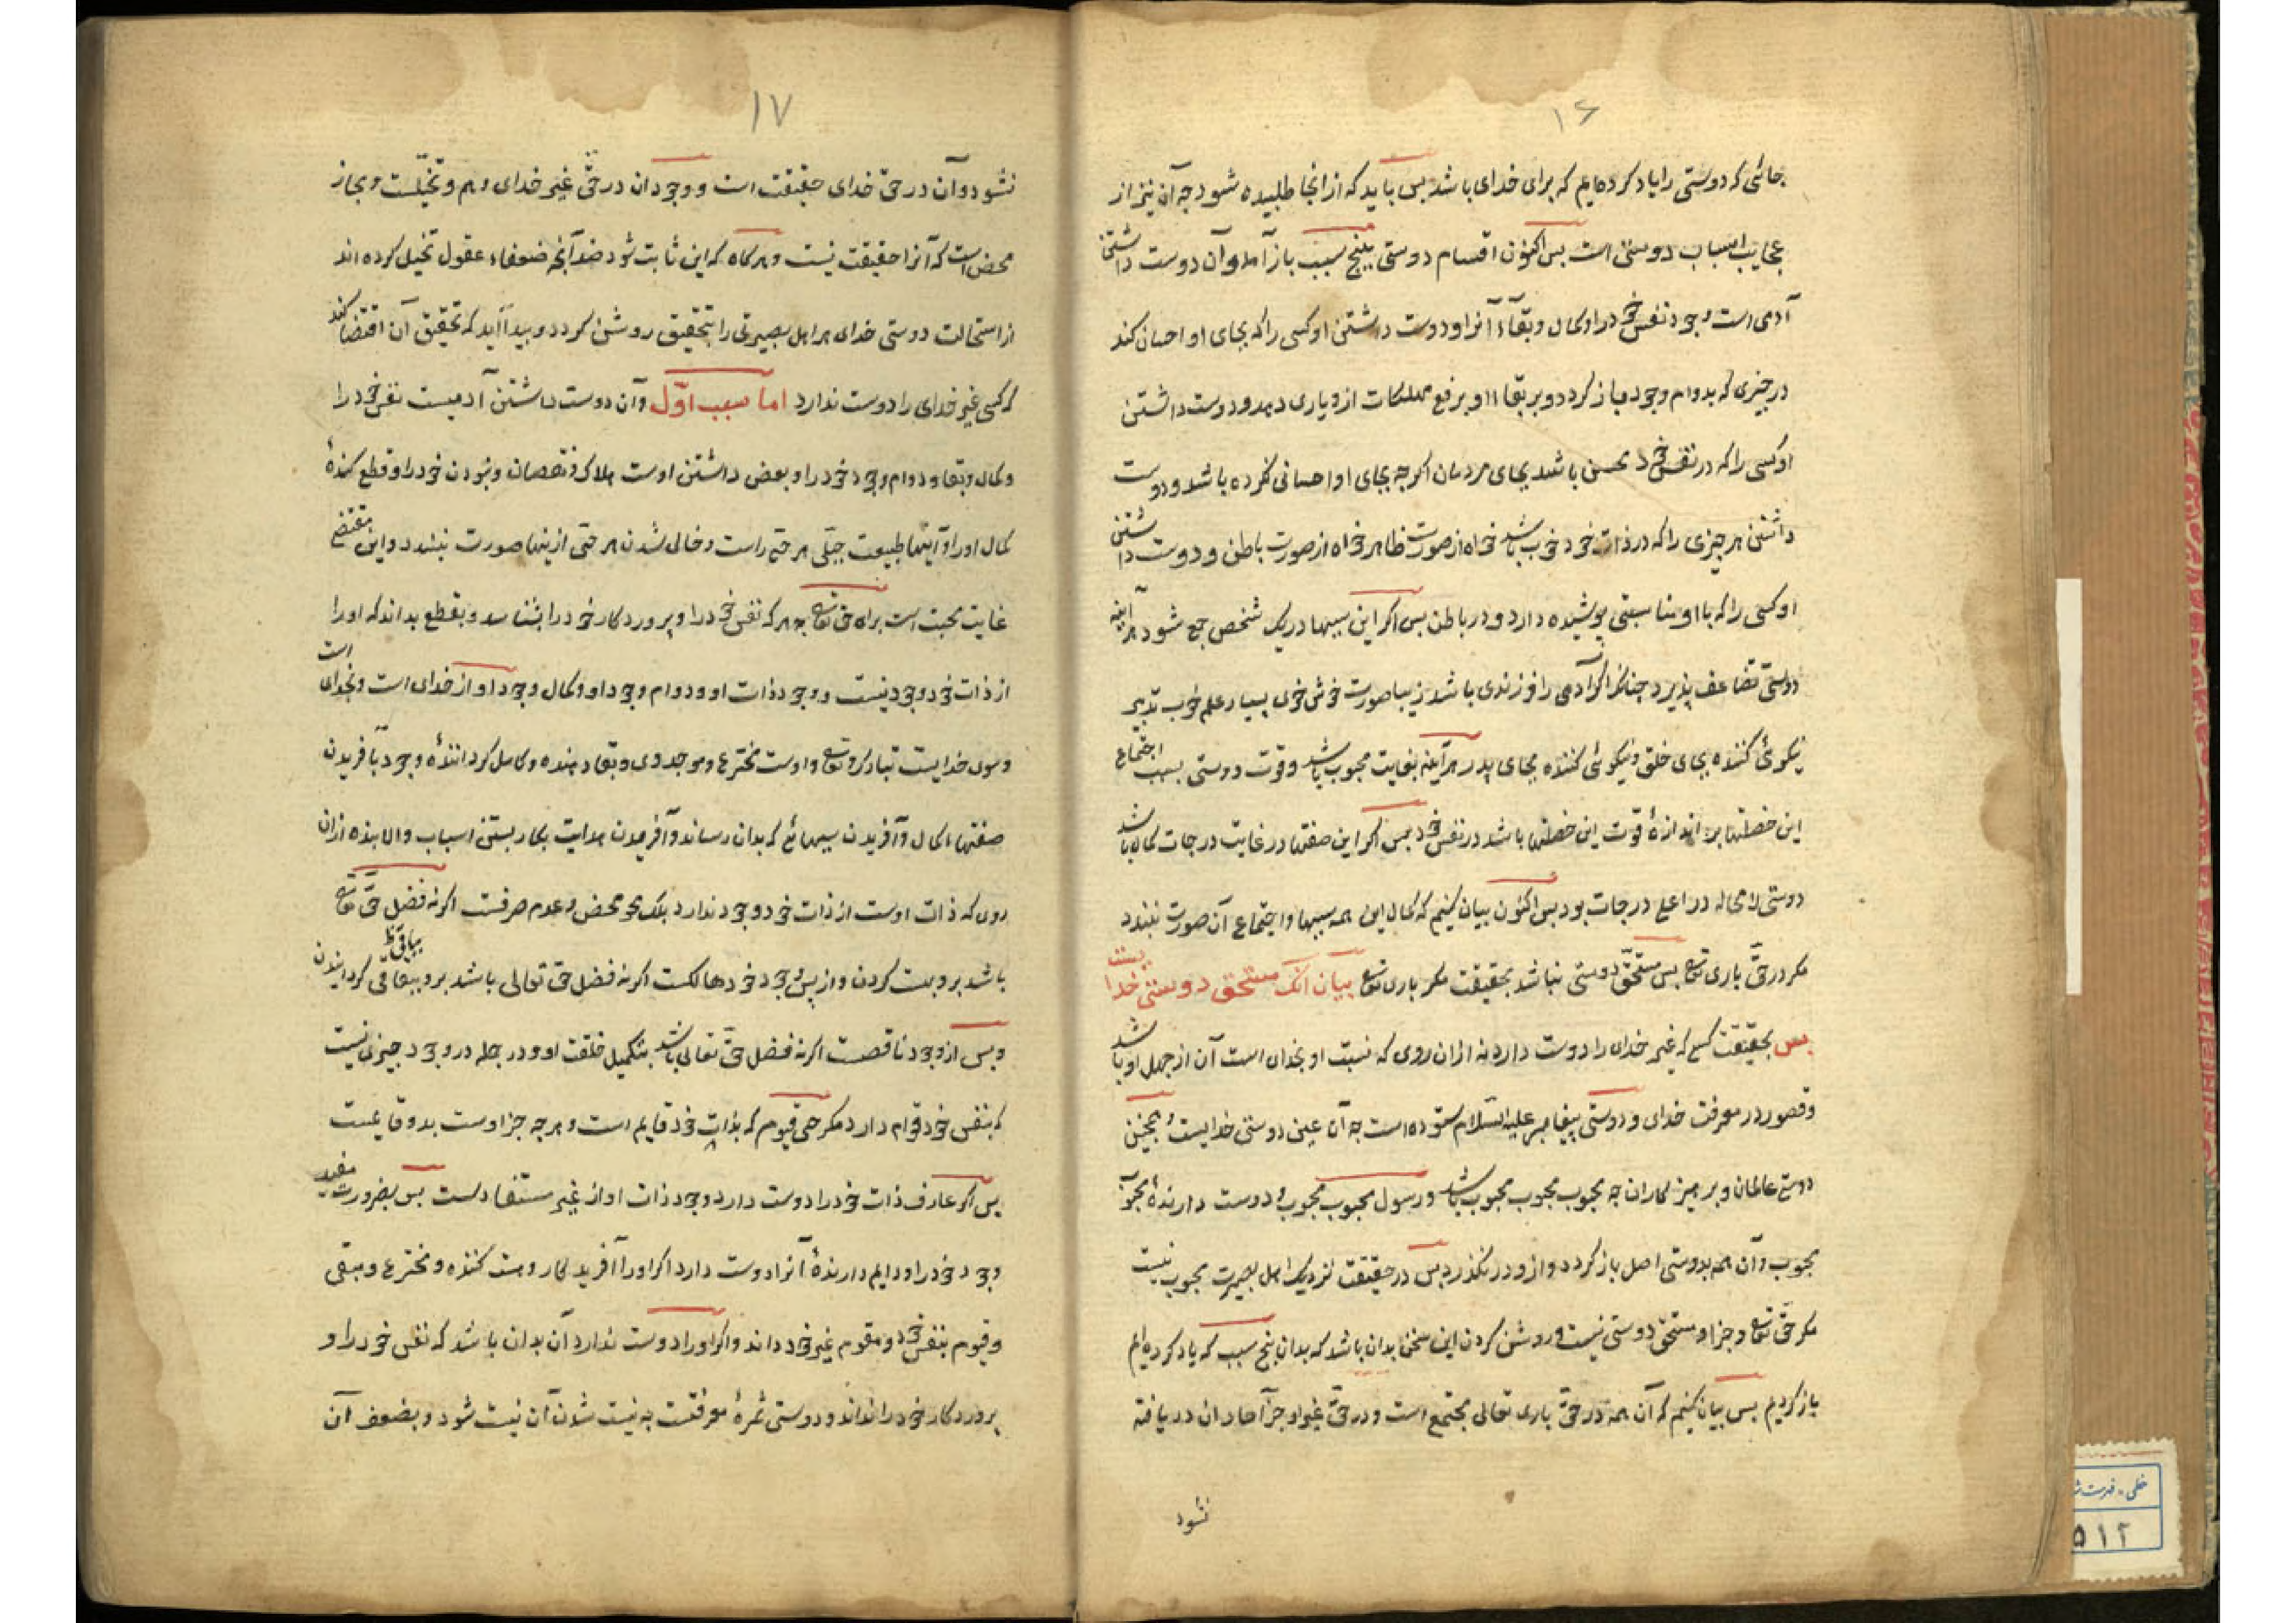 ۱۶
جائی که دوستی را یاد کرده‌ایم که برای خدای باشد بس باید که از انجا طلبیده شود جه آن نیز از
عجایب اسباب دوستی است بس اکنون اقسام دوستی بپنج سبب باز آمد و آن دوست داشتن
آدمی است وجود نفس خود را و کمال و بقاء آنرا و دوست داشتن او کسی را که بجای او احسان کند
در جیزی که بدوام وجود باز کردد و بر بقاء او بر رفع مهلکات ازو یاری دهد و دوست داشتن
او کسی را که در نفس خود محسن باشد بجای مردمان اکرجه بجای او احسانی نکرده باشد و دوست
داشتن هر جیزی را که در ذات خود خوب باشد خواه از صورت ظاهر خواه از صورت باطن و دوست داشتن
او کسی را که با او مناسبتی پوشیده دارد و در باطن بس اکر این سببها در یک شخص جمع شود هر آینه
دوستی تضاعف پذیرد جنانکه اکر آدمی را فرزندی باشد زیبا صورت خوش خوی بسیار علم خوب تدبیر
نیکوئی کننده بجای خلق و نیکوئی کننده بجای پدر هر آینه بغایت محبوب باشد و قوت دوستی بسبب اجتماع
این خصلتها بر اندازهٔ قوت این خصلتها باشد در نفس خود بس اکر این صفتها در غایت درجات کمال باشد
دوستی لا محاله در اعلی درجات بود بس اکنون بیان کنیم که کمال این همه سببها و اجتماع آن صورت نبندد
مکر در حقّ باری تعالی بس مستحقّ دوستی نباشد بحقیقت مکر باری تعالی بیان آنک مستحق دوستی خدا
بس بحقیقت کسی که غیر خدای را دوست دارد نه ازان روی که نسبت او بخدای است آن از جهل او باشد
و قصور در معرفت خدای و دوستی پیغامبر علیه السّلام ستوده است جه آن عین دوستی خدایست و همجنین
دوستی عالمان و پرهیزکاران جه محبوب محبوب محبوب باشد و رسول محبوب محبوب و دوست دارندهٔ محبوب
محبوب و آن همه بدوستی اصل باز کردد و ازو در نکذرد بس در حقیقت نزدیک اهل بصیرت محبوب نیست
مکر حقّ تعالی و جز او مستحق دوستی نیست و روشن کردن این سخن بدان باشد که بدان پنج سبب که یاد کرده‌ایم
باز کردیم بس بیان کنیم که آن همه در حقّ باری تعالی مجتمع است و در حقّ غیر او جز آحاد ان در یافته
نشود
۱۷
نشود و آن در حقّ خدای حقیقت است و وجود ان در حقّ غیر خدای وهم و تخیّلست و مجاز
محض است که آنرا حقیقت نیست و هرکاه که این ثابت شود ضد آنجه ضعفاء عقول تخیل کرده اند
از استحالت دوستی خدای هر اهل بصیرتی را بتحقیق روشن کردد و پیدا آید که تحقیق آن اقتضا کند
که کسی غیر خدای را دوست ندارد اما سبب اوّل و آن دوست داشتن آدمیست نفس خود را
و کمال و بقا و دوام وجود خود را و بعض داشتن اوست هلاک و نقصان و نبودن خود را و قطع کنندهٔ
کمال او را و اینها طبیعت جبلّی هر حی راست و خالی شدن هر حی ازینها صورت نبندد و این مقتضی
غایت محبت است براه حق تعالی جه هر که نفس خود را و پروردکار خود را بشناسد و بقطع بداند که او را
از ذات خود وجود نیست و وجود ذات او و دوام وجود او و کمال وجود او از خدای است و بخدای است
و سوی خدایست تبارک و تعالی و اوست مخترع و موجد وی و بقا دهنده و کامل کردانندهٔ وجود بآفریدن
صفتهاء کمال و آفریدن سببهائی که بدان رساند و آفریدن هدایت بکار بستن اسباب و الا بنده ازان
روی که ذات اوست از ذات خود وجود ندارد بلک محو محض و عدم صرفست اکر نه فضل حقّ تعالی
باشد برو بهست کردن و از پس وجود خود هالکست اکر نه فضل حق تعالی باشد برو بباقی کردانیدن
بباقی ظ
و بس از وجود ناقصست اکر نه فضل حقّ تعالی باشد بتکمیل خلقت او و در جمله در وجود جیزی نیست
که بنفس خود قوام دارد مکر حی قیوم که بذات خود قایم است و هرجه جز اوست بدو قایمست
پس اکر عارف ذات خود را دوست دارد وجود ذات او از غیر مستفادست بس بضرورت مفید
وجود خود را و دایم دارندهٔ آنرا دوست دارد اکر او را آفریدکار و هست کننده و مخترع و مبقی
و قیوم بنفس خود و مقوم غیر خود داند و اکر او را دوست ندارد آن بدان باشد که نفس خود را و
پروردکار خود را نداند و دوستی ثمرهٔ معرفتست به نیست شدن آن نیست شود و بضعف آن
خطی - فهرست
۵۱۲